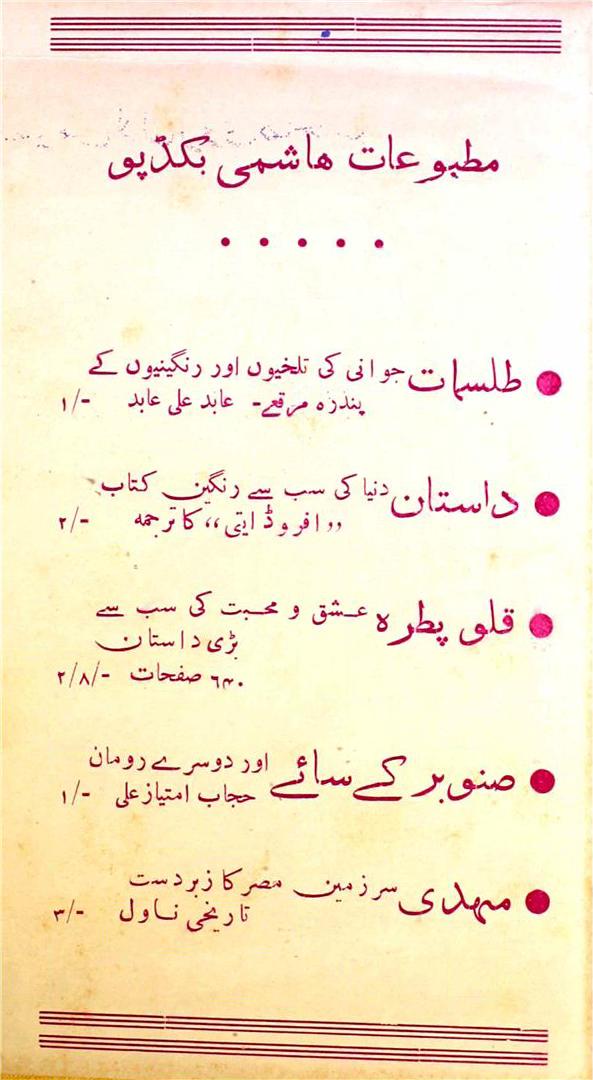 مطبوعات هاشمی بکڈپو
• • • • •
● طلسمات جوانی کی تلخیوں اور رنگینیوں کے
پندرہ مرقعے۔ عابد علی عابد ۱/-
● داستان دنیا کی سب سے رنگین کتاب
,,افروڈایتی،، کا ترجمه ۲/-
● قلو پطرہ عشق و محبت کی سب سے
بڑی داستان
۶۴۰ صفحات ۲/۸/-
● صنوبر کے سائے اور دوسرے رومان
حجاب امتیاز علی ۱/-
● مہدی سرزمین مصر کا زبردست
تاریخی ناول ۳/-